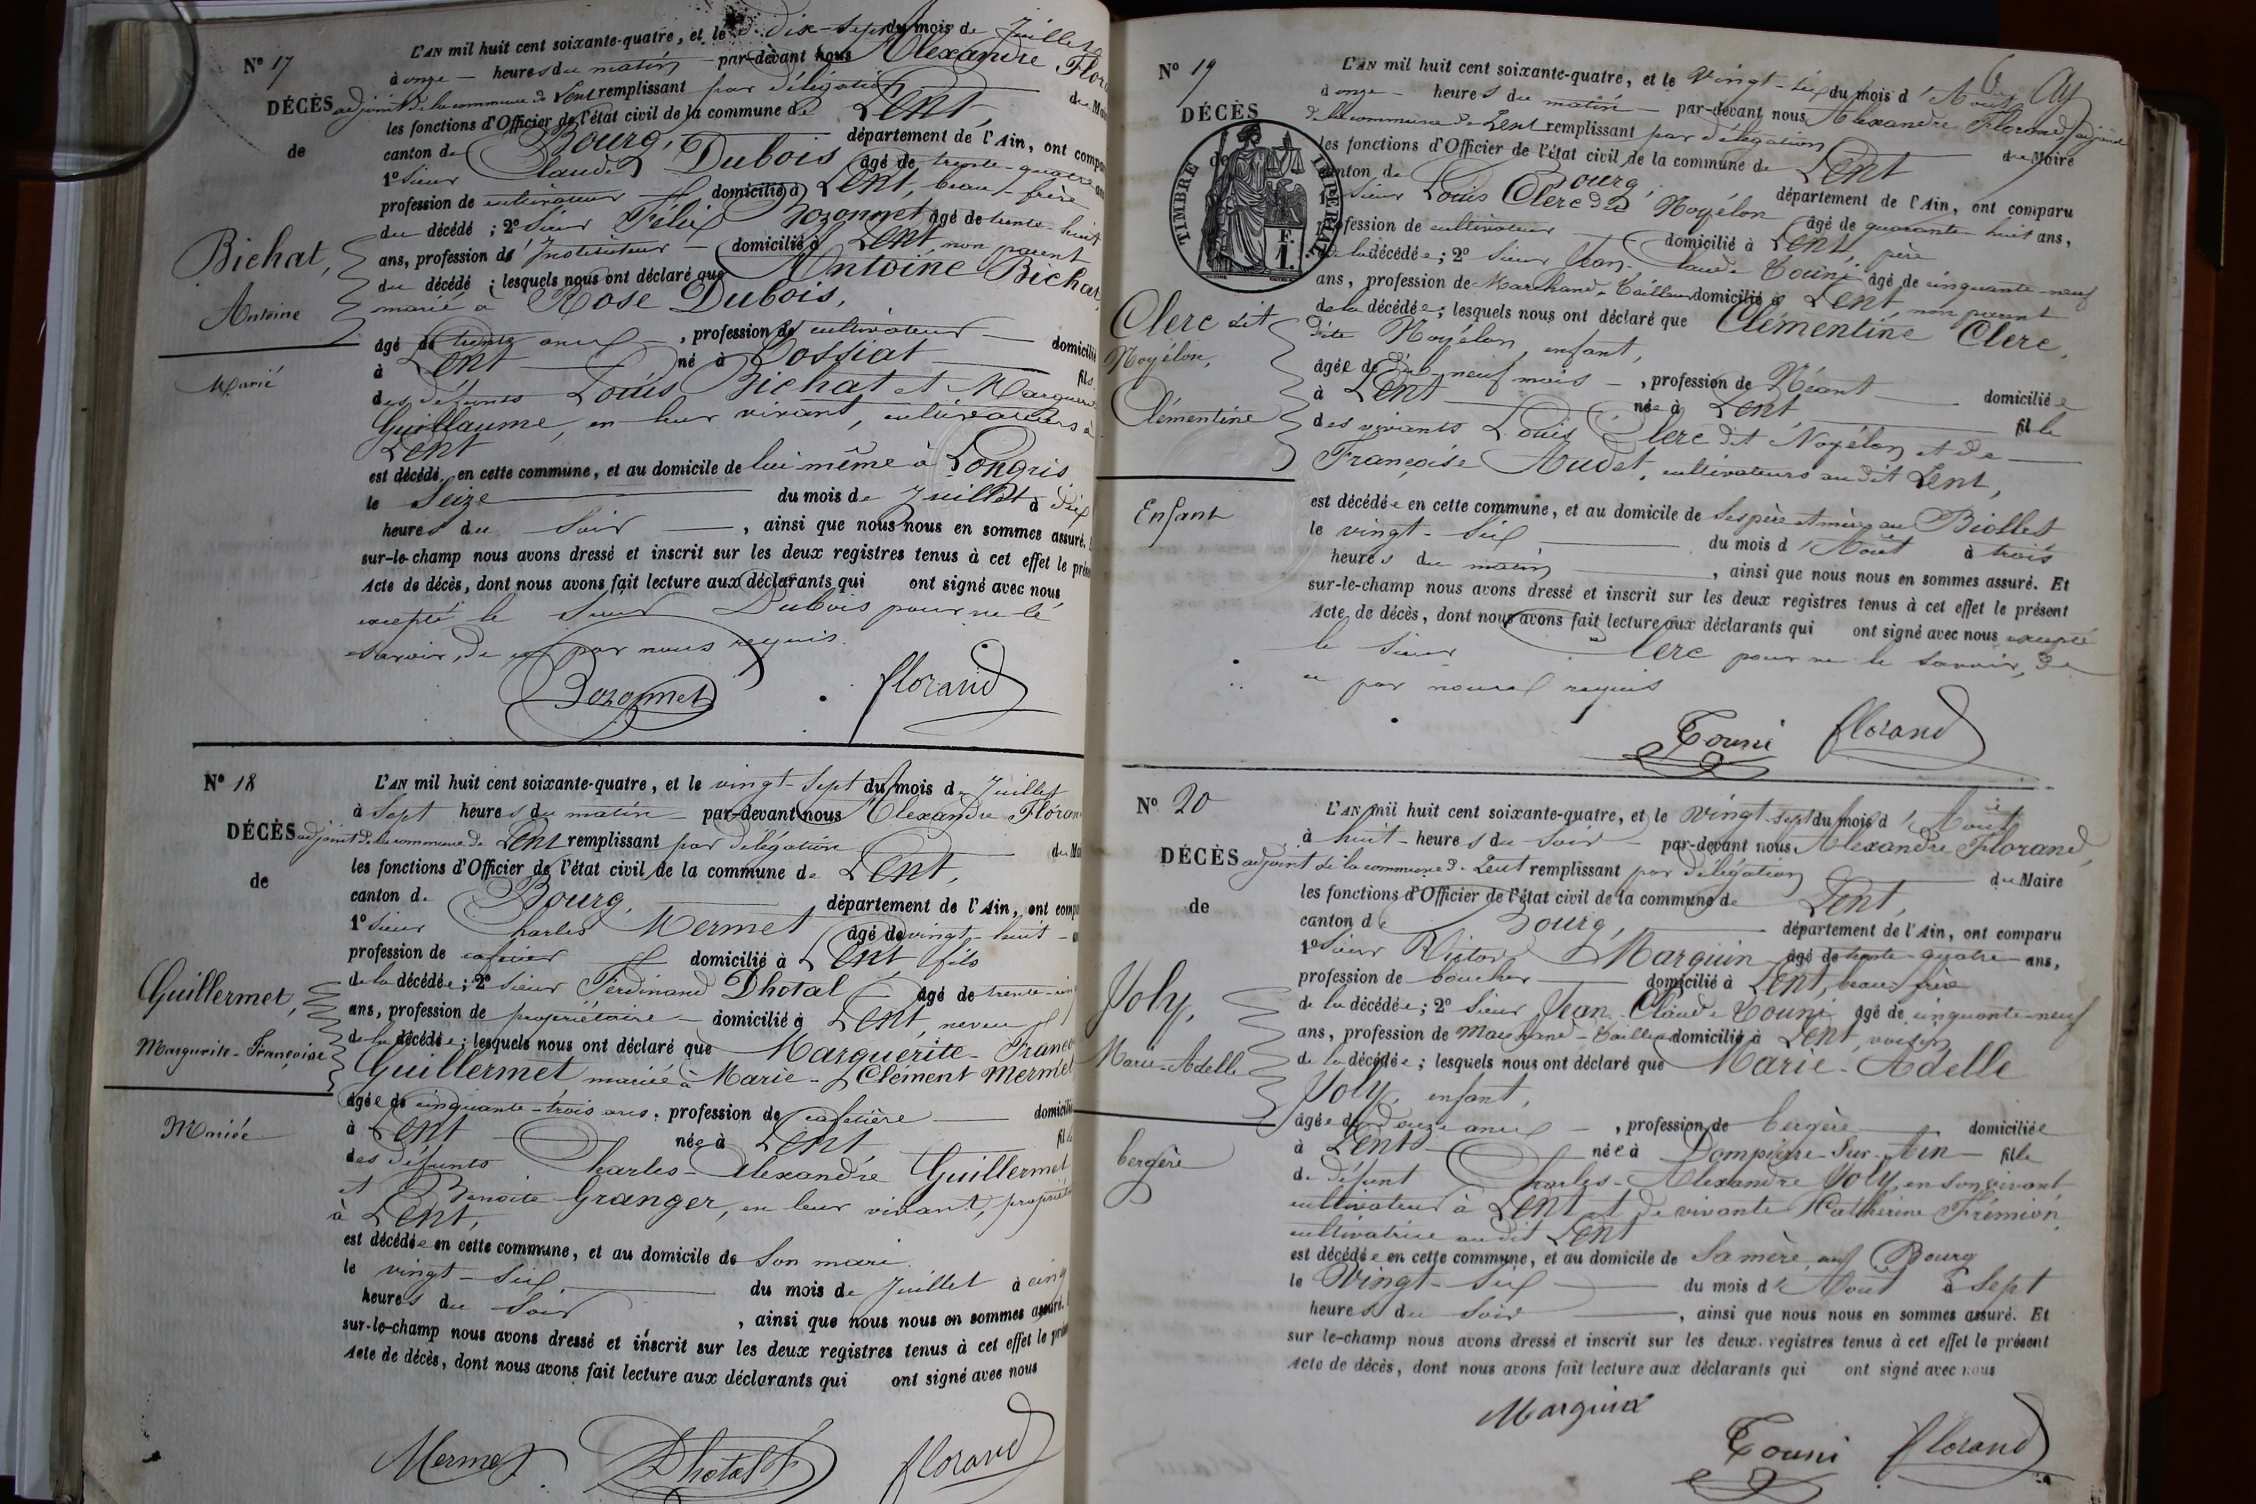 N° 17
DÉCÈS
de
Bichat,
Antoine
Marié
L'AN mil huit cent soixante-quatre, et le dix-sept du mois de Juillet
à onze heures du matin par-devant nous Alexandre Flor
adjoint de la commune de Lent remplissant par délégation du Ma
les fonctions d'Officier de l'état civil de la commune de Lent,
canton de Bourg, département de l'Ain, ont compa
1° Sieur Claude Dubois âgé de trente-quatre an
profession de cultivateur domicilié à Lent, beau-frère
du décédé ; 2° Sieur Félix Bozonnet âgé de trente-huit
ans, profession de Instituteur domicilié à Lent, non parent
du décédé ; lesquels nous ont déclaré que Antoine Bichat,
marié à Rose Dubois,
âgé de trente ans, profession de cultivateur domicilié
à Lent né à Cossiat fils
des défunts Louis Bichat et Marguer
Guillaume, en leur vivant, cultivateurs à
Lent
est décédé en cette commune, et au domicile de lui même à Longris
le Seize du mois de Juillet à dix
heures du soir, ainsi que nous nous en sommes assuré.
sur-le-champ nous avons dressé et inscrit sur les deux registres tenus à cet effet le prése
Acte de décès, dont nous avons fait lecture aux déclarants qui ont signé avec nous
excepté le sieur Dubois pour ne le
savoir, de ce par nous requis.
Bozonnet florand
N° 18
DÉCÈS
de
Guillermet,
Marguerite-Françoise
Mariée
L'AN mil huit cent soixante-quatre, et le vingt-sept du mois de Juillet
à sept heures du matin par-devant nous Alexandre Floran
adjoint de la commune de Lent remplissant par délégation du Ma
les fonctions d'Officier de l'état civil de la commune de Lent,
canton de Bourg, département de l'Ain, ont compa
1° Sieur Charles Mermet âgé de vingt-huit
profession de cafetier domicilié à Lent fils
de la décédée ; 2° Sieur Ferdinand Dhotal âgé de trente-cinq
ans, profession de propriétaire domicilié à Lent, neveu
de la décédée ; lesquels nous ont déclaré que Marguérite-Franço
Guillermet mariée à Marie-Clément Mermet
âgée de cinquante-trois ans, profession de cafetière domicilié
à Lent née à Lent fille
des défunts Charles-Alexandre Guillermet
et Benoite Granger, en leur vivant, propriéta
à Lent,
est décédée en cette commune, et au domicile de Son mari
le vingt-six du mois de Juillet à cinq
heures du soir, ainsi que nous nous en sommes assuré.
sur-le-champ nous avons dressé et inscrit sur les deux registres tenus à cet effet le prése
Acte de décès, dont nous avons fait lecture aux déclarants qui ont signé avec nous
Mermet Dhotal florand
N° 19
DÉCÈS
de
TIMBRE IMPERIAL
F.
1.
Clerc dit
Noyélon,
Clémentine
Enfant
L'AN mil huit cent soixante-quatre, et le vingt-six du mois d'Août
à onze heures du matin par-devant nous Alexandre Florand adjoint
de la commune de Lent remplissant par délégation du Maire
les fonctions d'Officier de l'état civil de la commune de Lent
canton de Bourg, département de l'Ain, ont comparu
1° Sieur Louis Clerc dit Noyélon âgé de quarante-huit ans,
profession de cultivateur domicilié à Lent, père
de la décédée ; 2° Sieur Jean-Claude Touni âgé de cinquante-neuf
ans, profession de Marchand-Tailleur domicilié à Lent, non parent
de la décédée ; lesquels nous ont déclaré que Clémentine Clerc,
dite Noyélon, enfant,
âgée de dix-neuf mois, profession de Néant domiciliée
à Lent née à Lent fille
des vivants Louis Clerc dit Noyélon et de
Françoise Audet, cultivateurs au dit Lent,
est décédée en cette commune, et au domicile de ses père et mère au Biollet
le vingt-six du mois d'Août à trois
heures du matin, ainsi que nous nous en sommes assuré. Et
sur-le-champ nous avons dressé et inscrit sur les deux registres tenus à cet effet le présent
Acte de décès, dont nous avons fait lecture aux déclarants qui ont signé avec nous excepté
le sieur Clerc pour ne le savoir, de
ce par nous requis
Touni florand
N° 20
DÉCÈS
de
Joly,
Marie-Adelle
bergère
L'AN mil huit cent soixante-quatre, et le vingt-sept du mois d'Août
à huit heures du soir par-devant nous Alexandre Florand,
adjoint de la commune de Lent remplissant par délégation du Maire
les fonctions d'Officier de l'état civil de la commune de Lent,
canton de Bourg, département de l'Ain, ont comparu
1° Sieur Victor Marguin âgé de trente-quatre ans,
profession de boucher domicilié à Lent, beau-frère
de la décédée ; 2° Sieur Jean-Claude Touni âgé de cinquante-neuf
ans, profession de Marchand-Tailleur domicilié à Lent, voisin
de la décédée ; lesquels nous ont déclaré que Marie-Adelle
Joly, enfant,
âgée de douze ans, profession de bergère domiciliée
à Lent née à Dompierre-Sur-Ain fille
de défunt Charles-Alexandre Joly, en son vivant
cultivateur à Lent et de vivante Catherine Frémion,
cultivatrice au dit Lent
est décédée en cette commune, et au domicile de Sa mère, au Bourg
le Vingt-six du mois d'Août à sept
heures du soir, ainsi que nous nous en sommes assuré. Et
sur le-champ nous avons dressé et inscrit sur les deux registres tenus à cet effet le présent
Acte de décès, dont nous avons fait lecture aux déclarants qui ont signé avec nous
Marguin
Touni florand